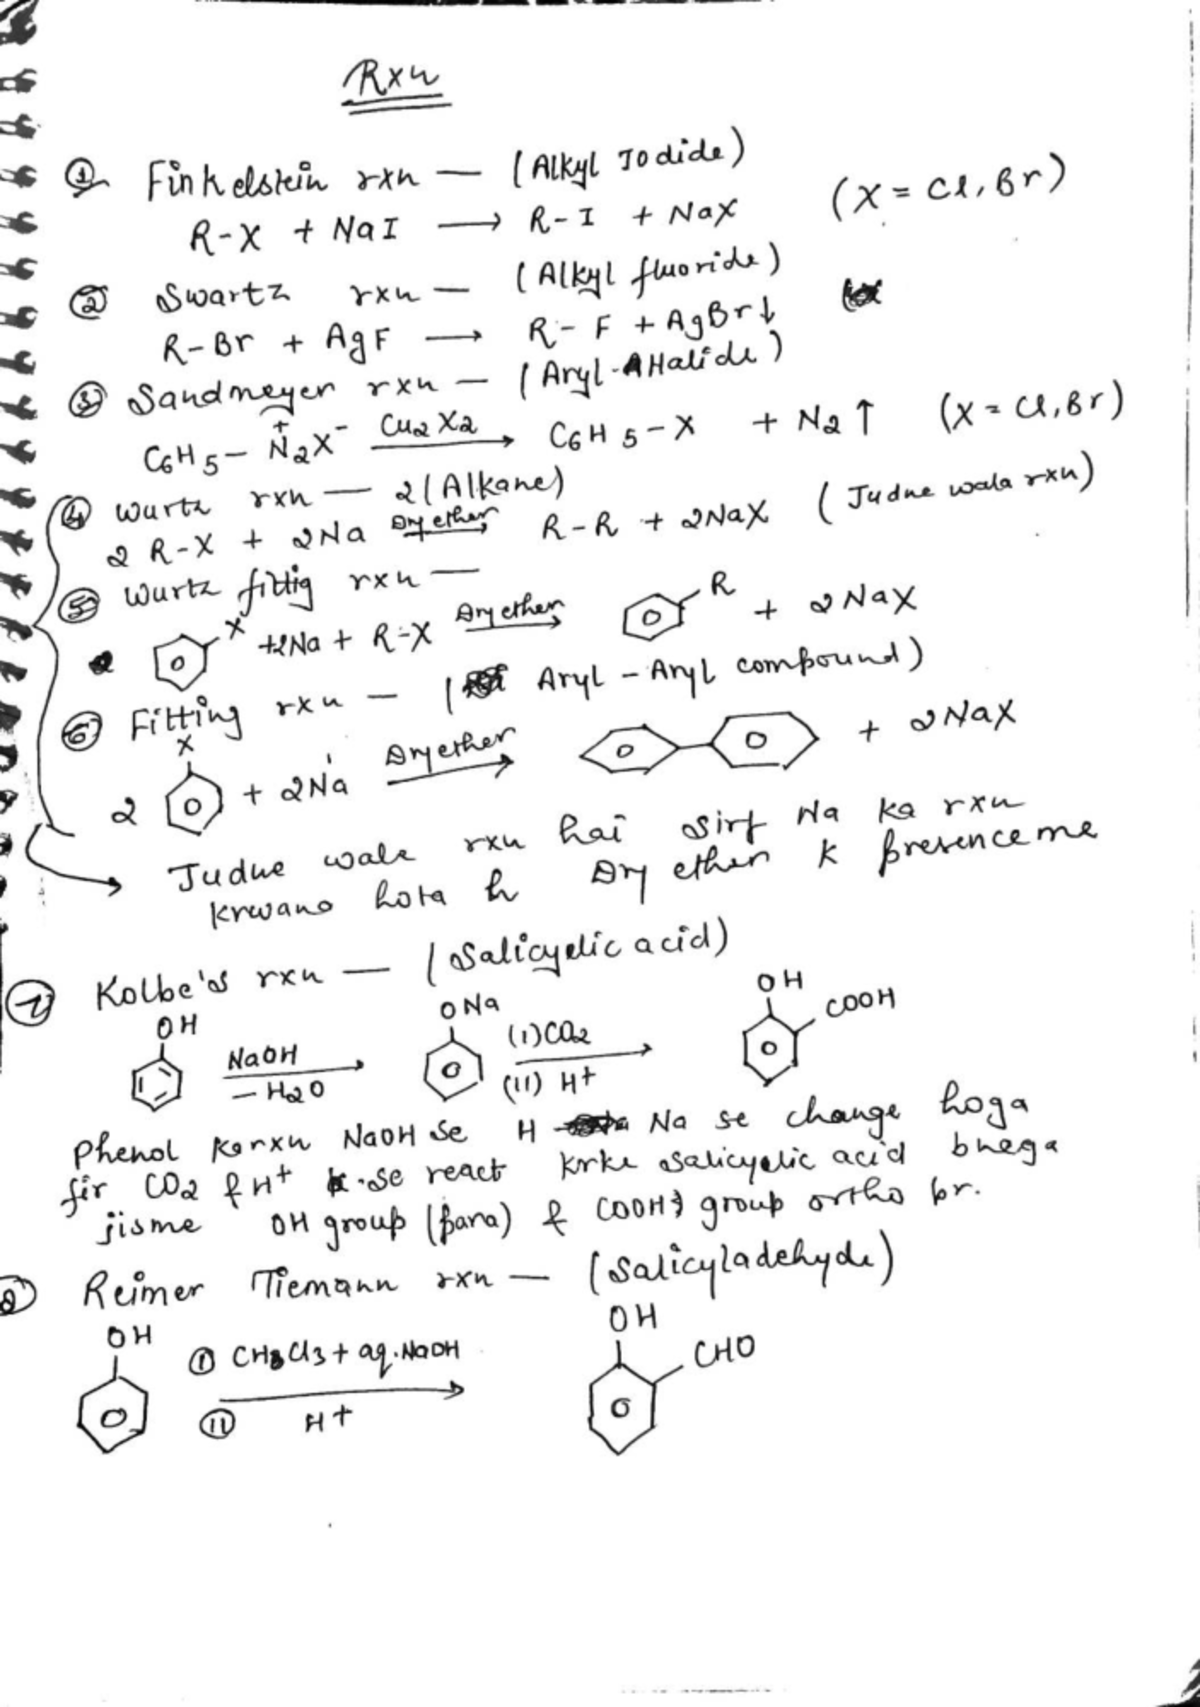 Rxn
① Finkelstein rxn — (Alkyl Iodide)
R-X + NaI ⟶ R-I + NaX (X = Cl, Br)
② Swartz rxn — (Alkyl fluoride)
R-Br + AgF ⟶ R-F + AgBr↓
③ Sandmeyer rxn — (Aryl-Halide)
C6H5-N⁺2X⁻ Cu2X2 ⟶ C6H5-X + N2↑ (X = Cl, Br)
④ Wurtz rxn — 2(Alkane)
2 R-X + 2Na Dry ether ⟶ R-R + 2NaX (Judne wala rxn)
⑤ Wurtz fittig rxn —
X +2Na + R-X Dry ether ⟶ R + 2NaX
⑥ Fitting rxn — ( Aryl-Aryl compound)
2 X + 2Na Dry ether ⟶ + 2NaX
Judne wala rxn hai sirf Na ka rxn
krwano hota h Dry ether k presence me
⑦ Kolbe's rxn — (Salicyclic acid)
OH NaOH -H2O ⟶ ONa (I) CO2 (II) H+ ⟶ OH COOH
Phenol ka rxn NaOH se H Na se change hoga
fir CO2 & H+ se react krke salicyclic acid bnega
jisme OH group (para) & COOH group ortho pr.
⑧ Reimer Tiemann rxn — (Salicyladehyde)
OH ① CHCl3 + aq.NaOH ⑪ H+ ⟶ OH CHO